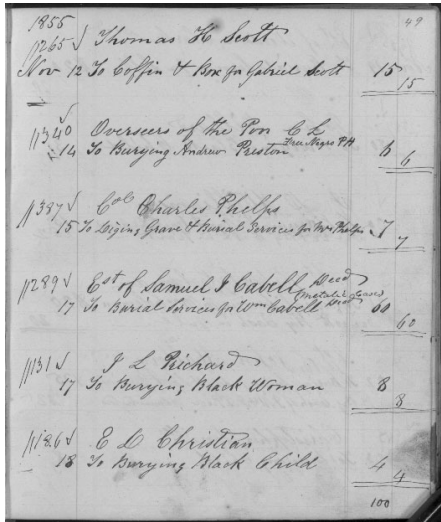 49
1855
11265 √ Thomas H Scott
Nov 12 To Coffin & Box for Gabriel Scott 15
15
11340 √ Overseers of the Poor C L
Free Negro P H
14 To Burying Andrew Preston 6
6
11387 √ Col Charles Phelps
15 To Diging Grave & Burial Services for Wm Phelps 7
7
11289 √ Est of Samuel J Cabell Decd
(Metalic Case)
17 To Burial Services for Wm Cabell Decd 60
60
11131 √ J L Prichard
17 To Burying Black Woman 8
8
11186 √ E D Christian
18 To Burying Black Child 4
4
100